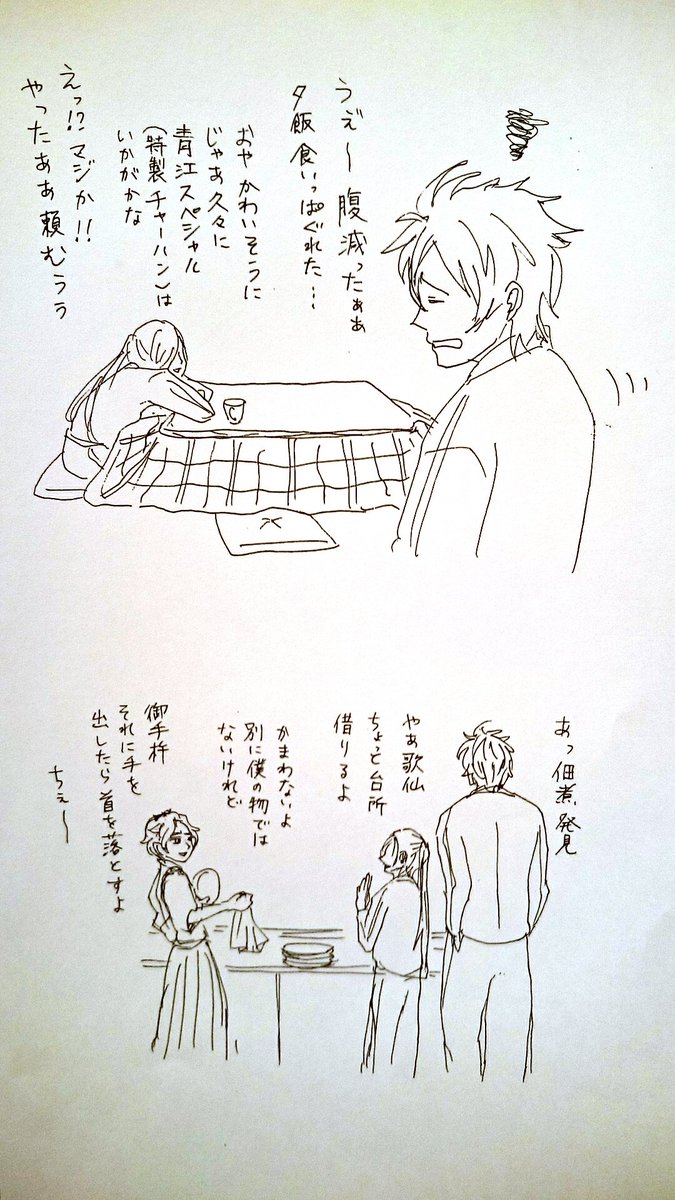 うぇ〜腹減ったぁぁ
夕飯食いっぱぐれた…
おやかわいそうに
じゃあ久々に
青江スペシャル
(特製チャーハン)は
いかがかな
えっ!?マジか!!
やったぁぁ頼むぅぅ
あっ佃煮発見
やぁ歌仙
ちょっと台所
借りるよ
かまわないよ
別に僕の物では
ないけれど
御手杵
それに手を
出したら首を落とすよ
ちぇ〜